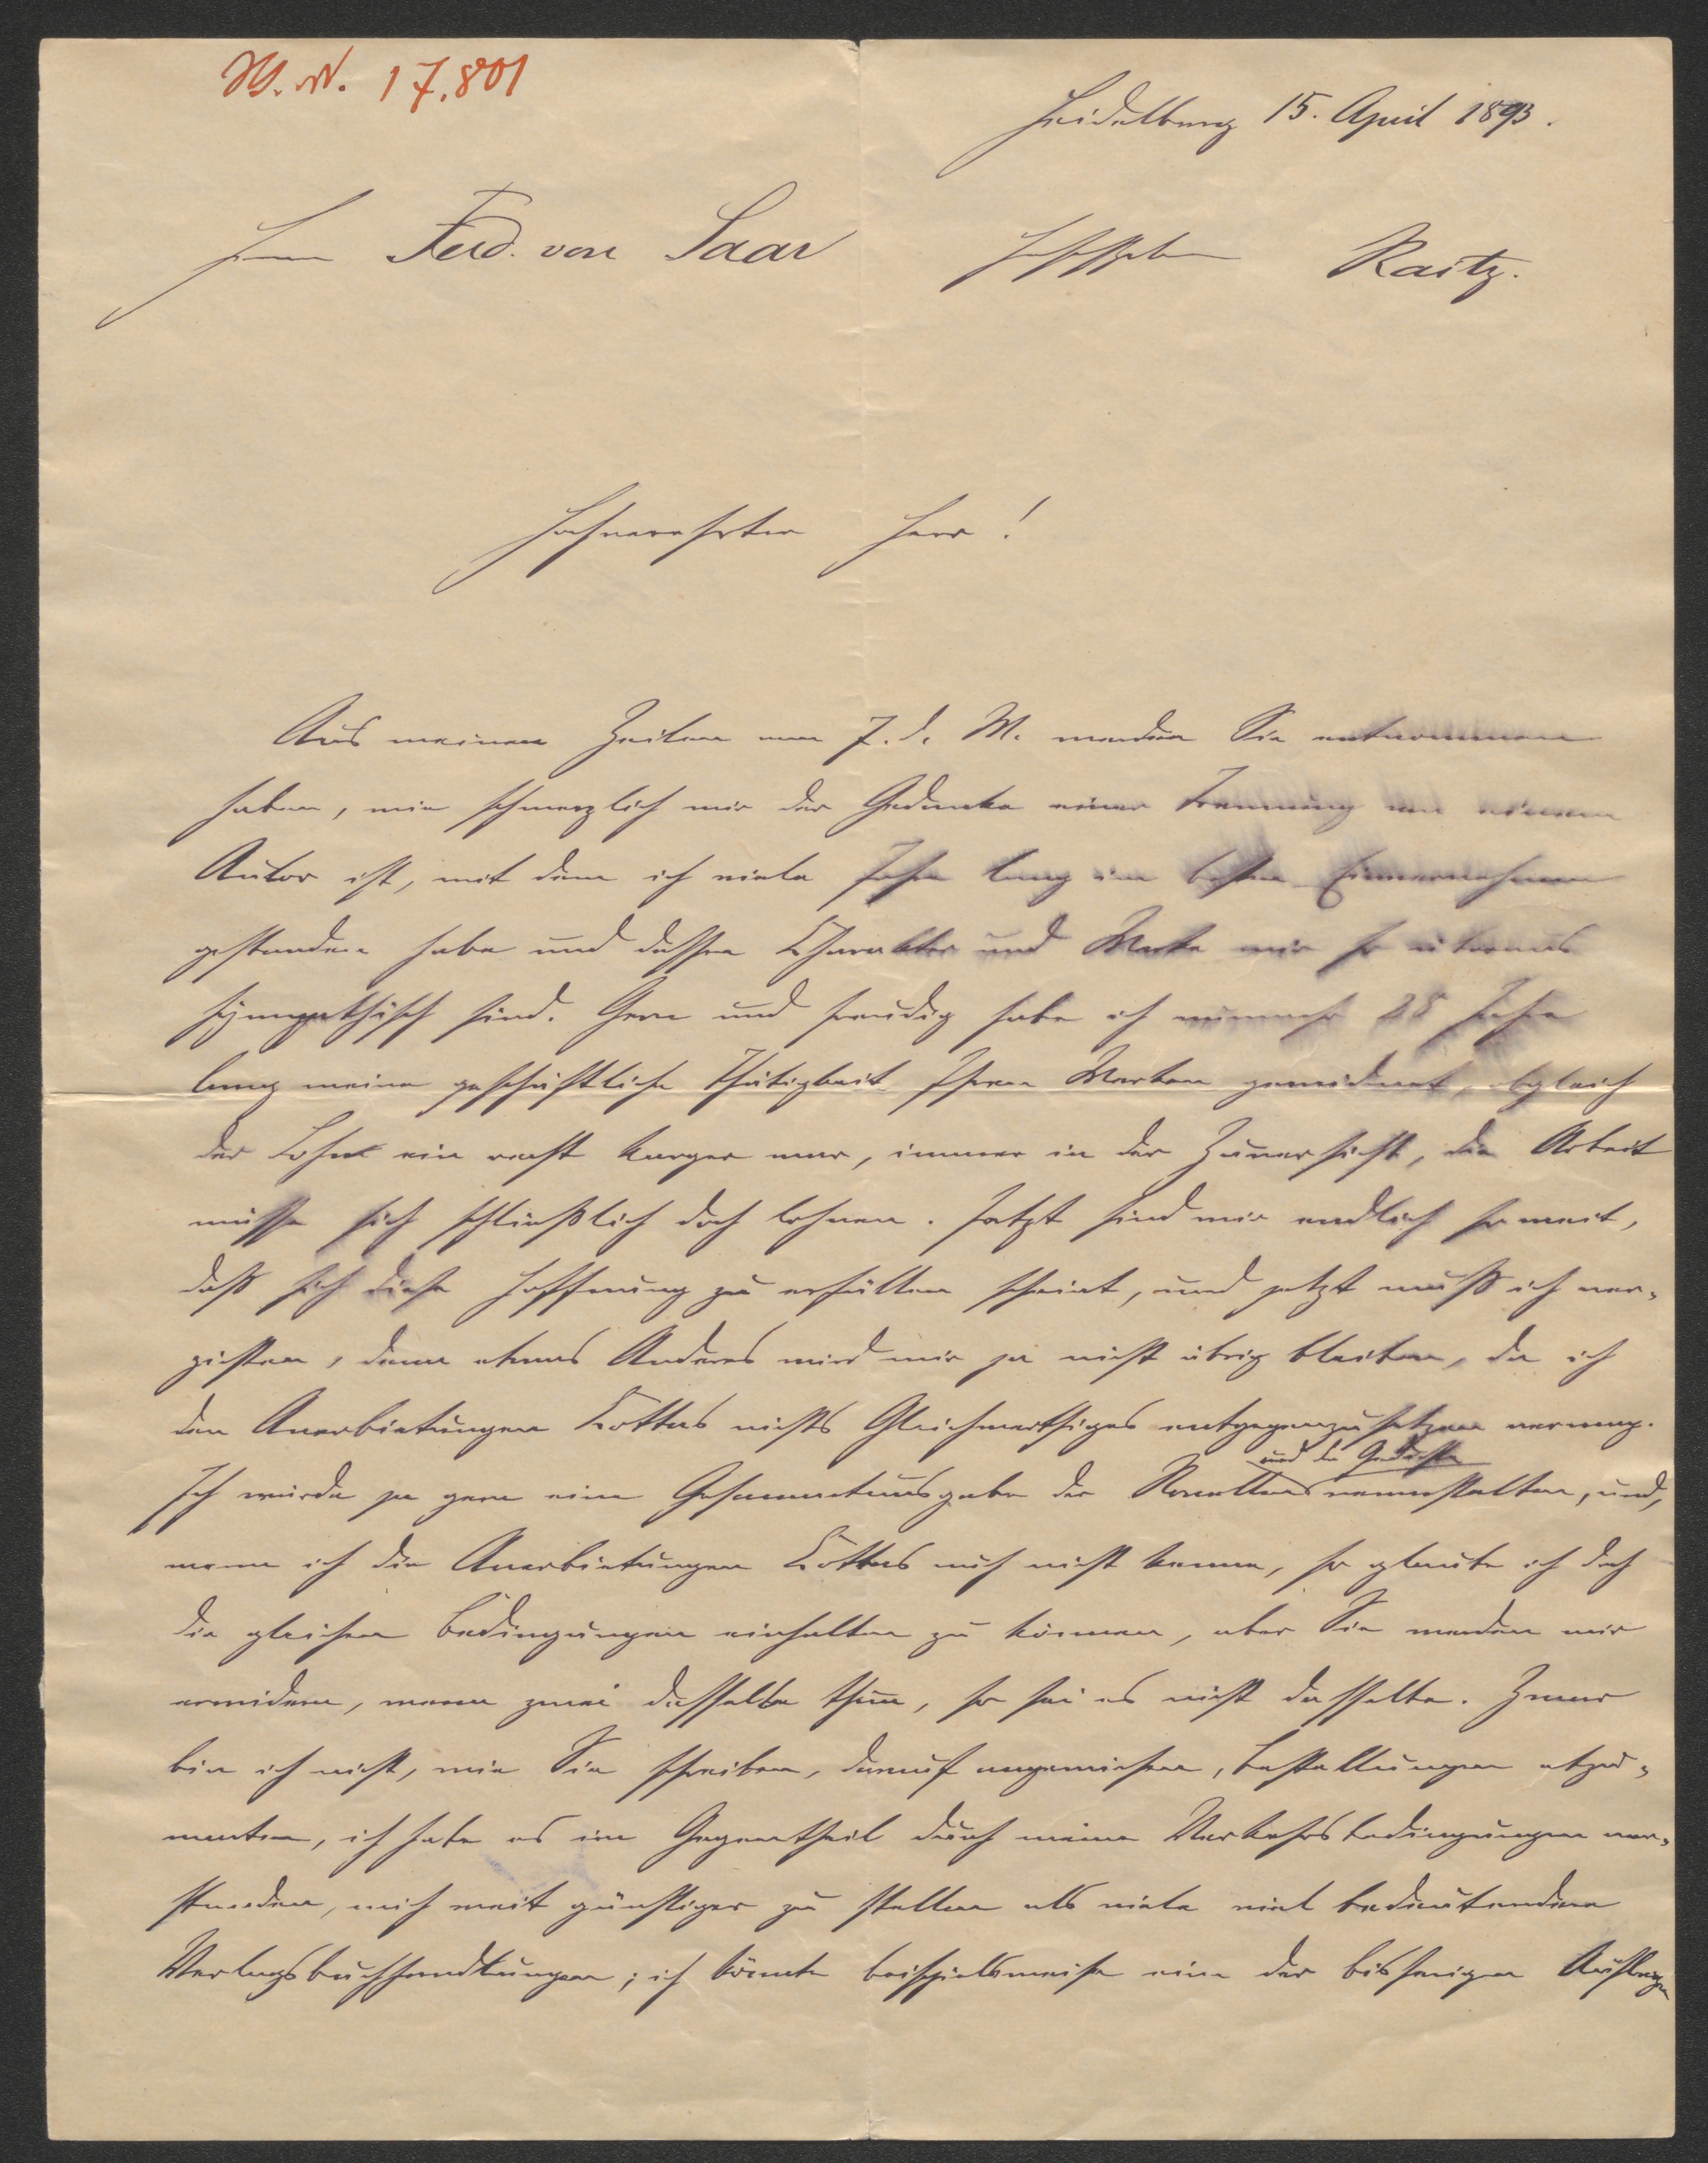 H.N. 17.801
Heidelberg 15. April 1893.
Herrn Ferd. von Saar Raitz.
Hochverehrter Herr!
Aus meinen Zeilen vom 7. d. M. werden Sie entnommen
haben, wie schmerzlich mir der Gedanke einer Trennung von einem
Autor ist, mit dem ich viele Jahre lang im besten Einvernehmen
gestanden habe und dessen Charakter und Werke mir so überaus
sympathisch sind. Gern und freudig habe ich nunmehr 25 Jahre
lang meine geschäftliche Thätigkeit Ihren Werken gewidmet, obgleich
der Lohn ein recht karger war, immer in der Zuversicht, die Arbeit
müsse sich schließlich doch lohnen. Jetzt sind wir endlich so weit,
daß sich diese Hoffnung zu erfüllen scheint, und jetzt muß ich ver-
zichten, denn etwas Anderes wird mir ja nicht übrig bleiben, da ich
den Anerbietungen Cottas nichts Gleichwerthiges entgegenzusetzen vermag.
und der Gedichte
Ich würde ja gern eine Gesammtausgabe der Novellen veranstalten, und,
wenn ich die Anerbietungen Cottas auch nicht kenne, so glaube ich doch
die gleichen Bedingungen einhalten zu können, aber Sie werden mir
erwidern, wenn zwei dasselbe thun, so sei es nicht dasselbe. Zwar
bin ich nicht, wie Sie schreiben, darauf angewiesen, Bestellungen abzu-
warten, ich habe es im Gegentheil durch meine Verkehrsbedingungen ver-
standen, mich weit günstiger zu stellen als viele viel bedeutendere
Verlagsbuchhandlungen; ich könnte beispielsweise eine der bisherigen Auflagen